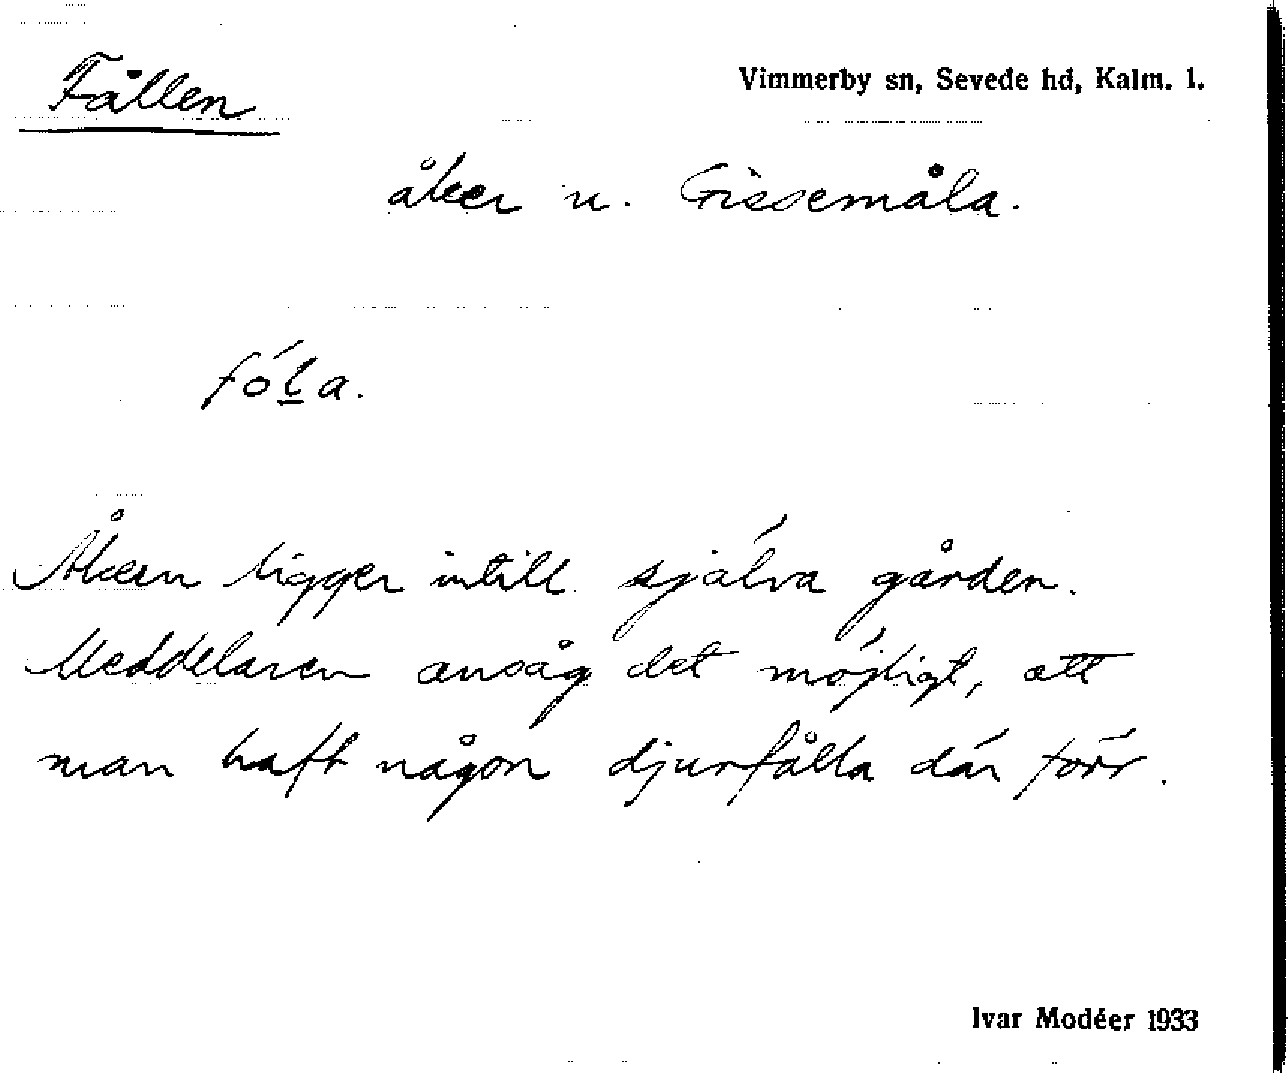 Fållen
Vimmerby sn, Sevede hd, Kalm. l.
åker u. Gissemåla.
fó́l̲a.
Åkern ligger intill själva gården.
Meddelaren ansåg det möjligt, att
man haft någon djurfålla där förr.
Ivar Modéer 1933